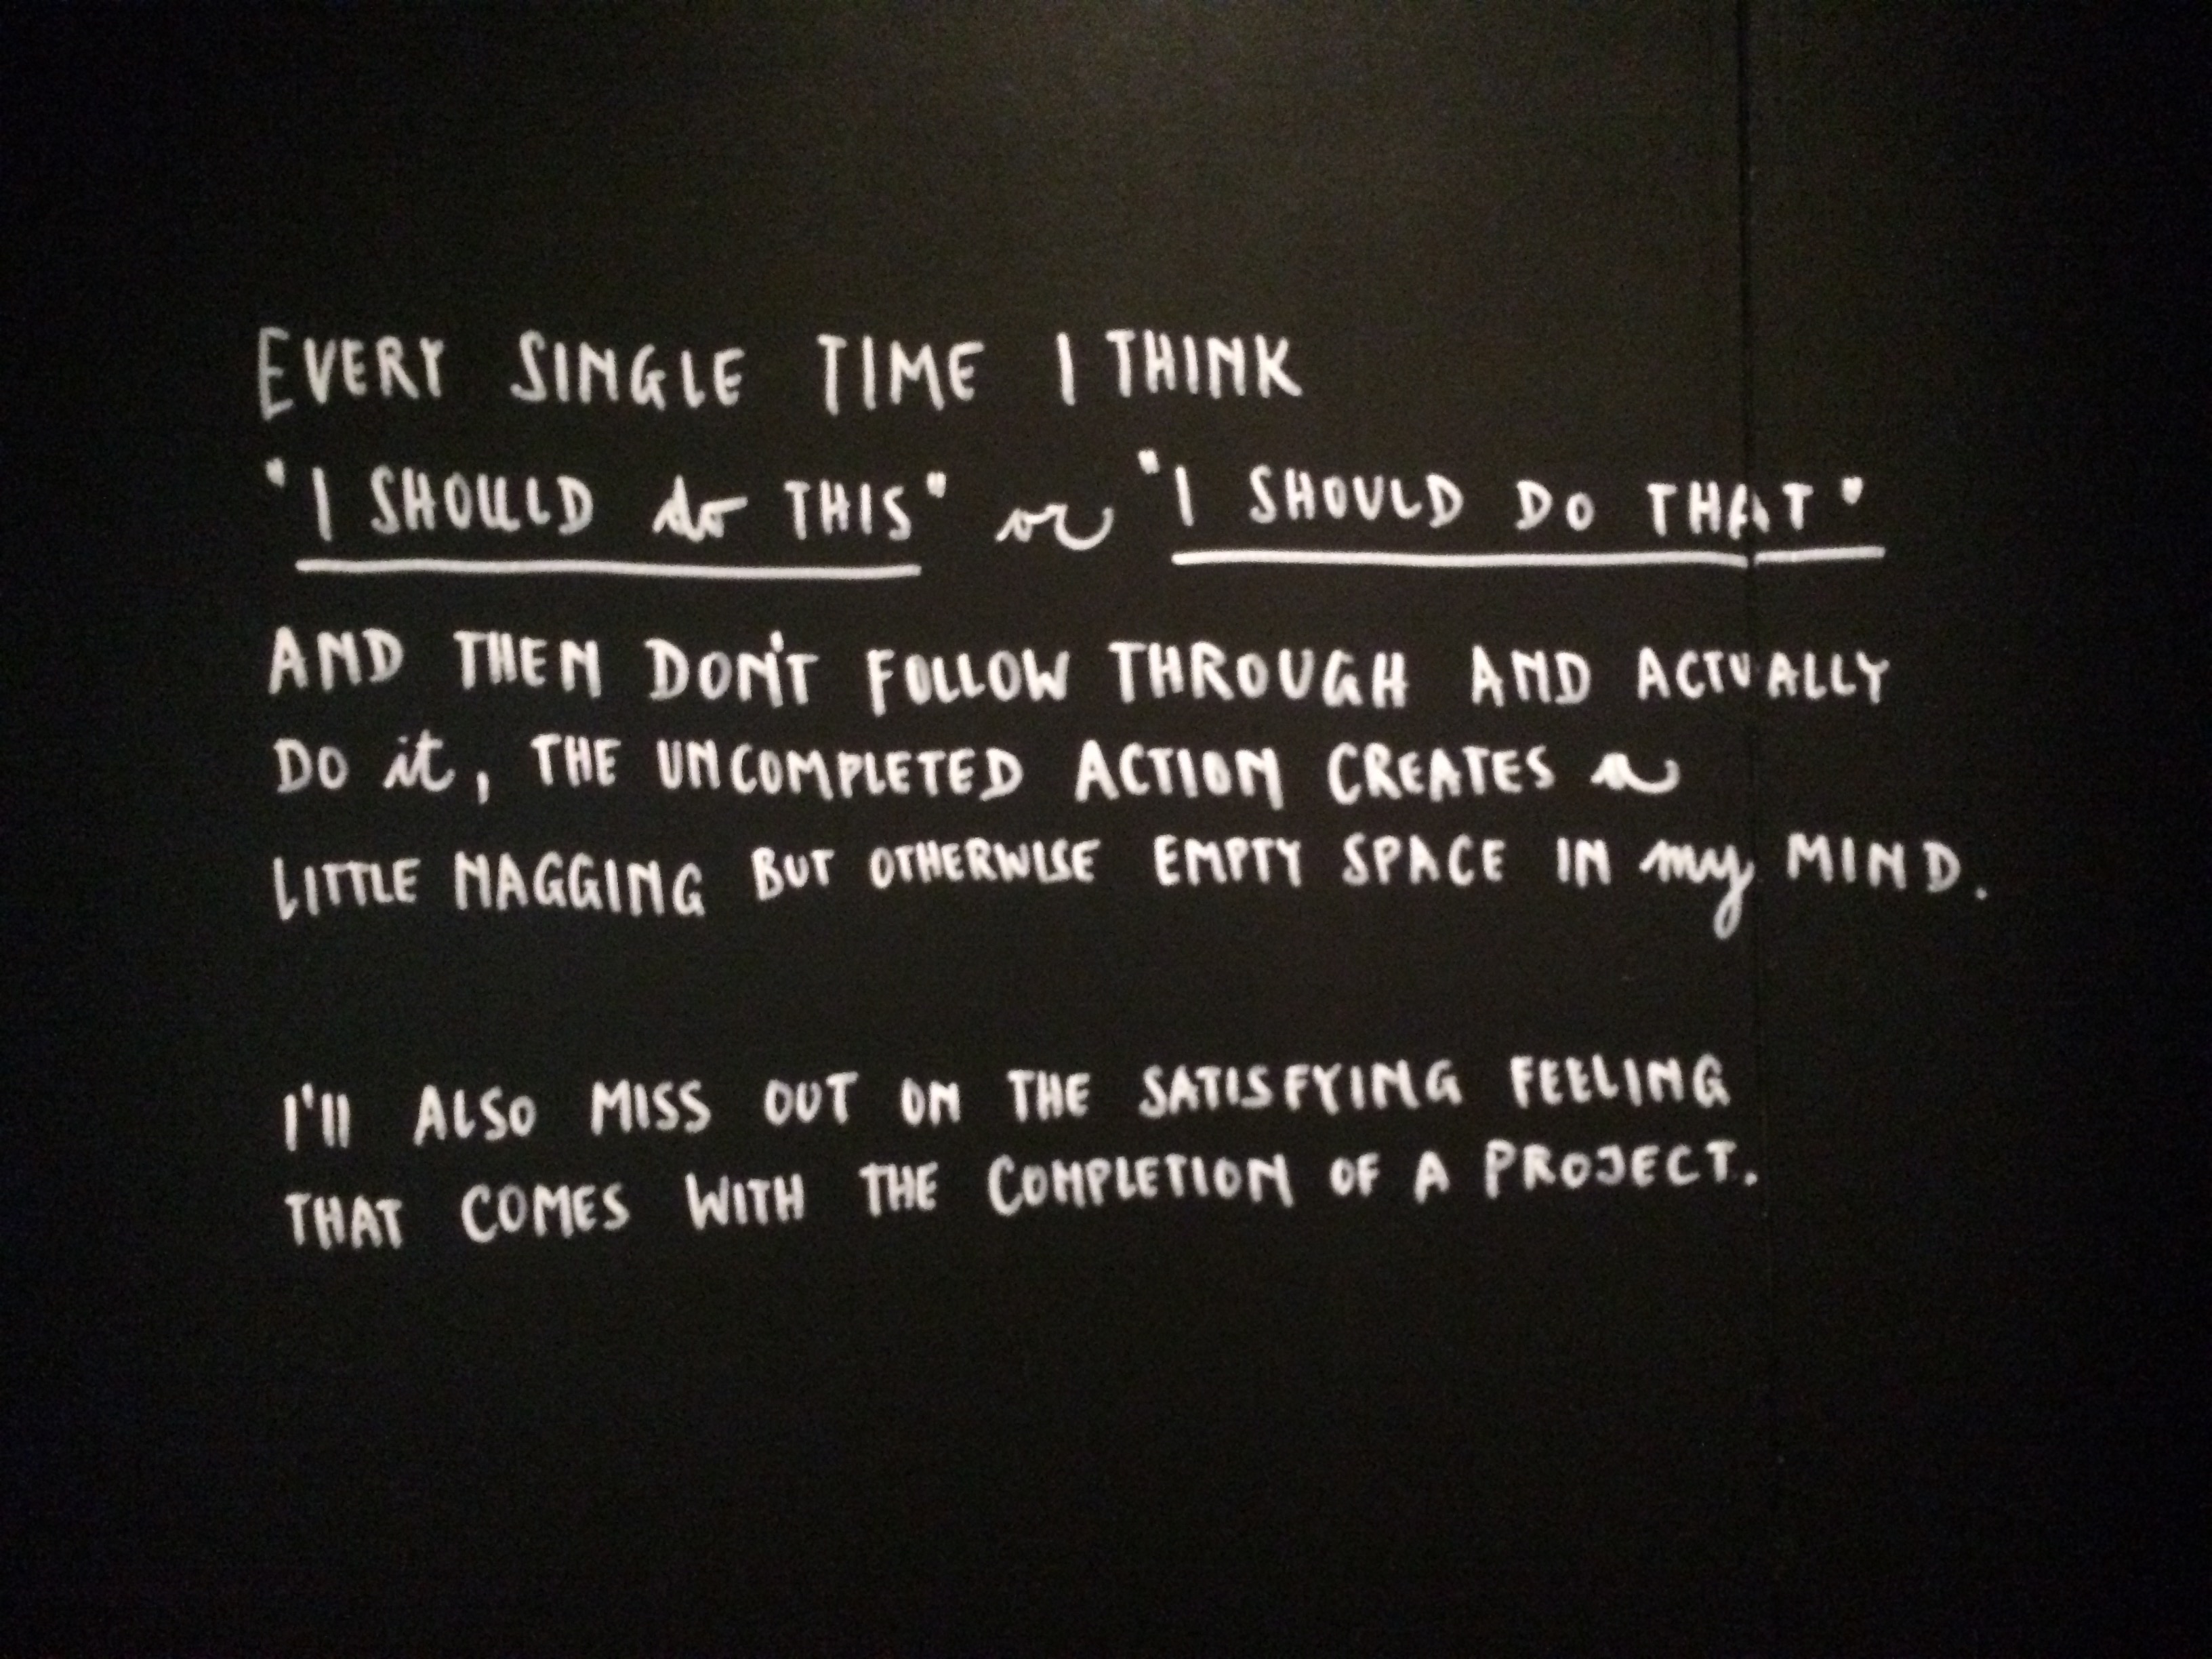 EVERY SINGLE TIME I THINK
"I SHOULD do THIS" or "I SHOULD DO THAT"
AND THEN DON'T FOLLOW THROUGH AND ACTUALLY
DO it, THE UNCOMPLETED ACTION CREATES a
LITTLE NAGGING BUT OTHERWISE EMPTY SPACE IN my MIND.
I'll ALSO MISS OUT ON THE SATISFYING FEELING
THAT COMES WITH THE COMPLETION OF A PROJECT.